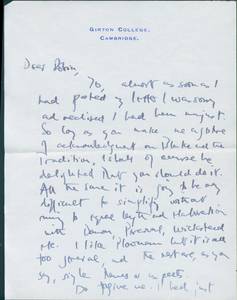 GIRTON COLLEGE,
CAMBRIDGE.
Dear Robin,
Yes, almost as soon as I
had posted my letter I was sorry
and realised I had been unjust.
So long as you make me a
of acknowledgment on Blake and the
Tradition, I shall of course be
delighted that you should do it.
All the same it is going to be very
difficult to simplify without
running to
with Damon, Percival, Wicksteed
etc. I like Plowman but it is all
too general, and the rest are, as you
say, single names or aspects.
Do forgive me. I had just